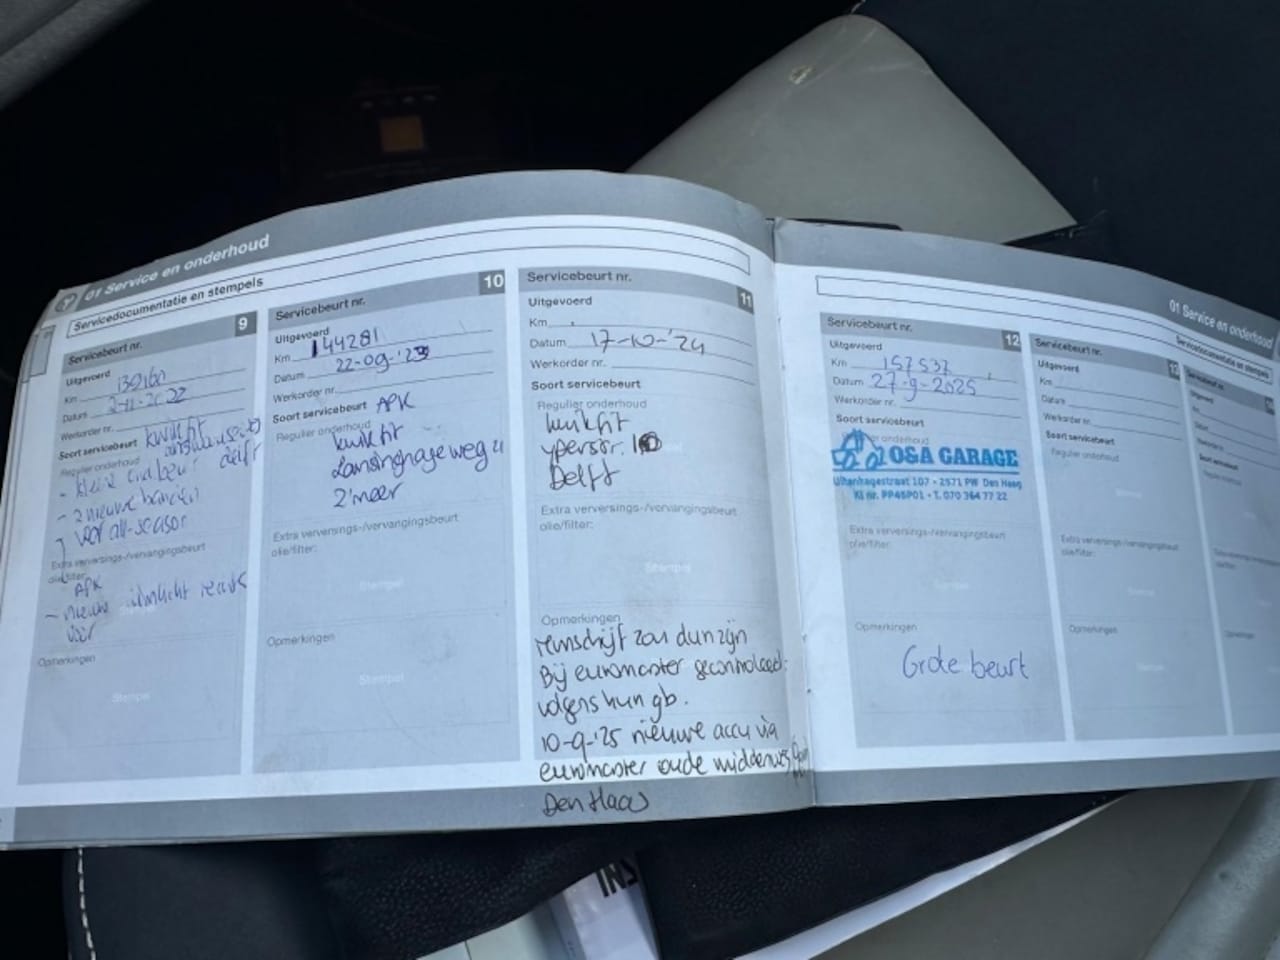 01 Service en onderhoud
Servicedocumentatie en stempels
Servicebeurt nr. 9
Uitgevoerd
Km
Datum 2-11-2022
Werkorder nr.
Soort servicebeurt kwikfit
Regulier onderhoud
- kleine beurt delft
- 2 nieuwe banden
voor all-season
Extra verversings-/vervangingsbeurt
olie/filter:
APK
- nieuwe rechts
voor
Opmerkingen
Stempel
Servicebeurt nr. 10
Uitgevoerd
Km 144281
Datum 22-09-'23
Werkorder nr.
Soort servicebeurt APK
Regulier onderhoud
kwikfit
Lansinghageweg
Z'meer
Extra verversings-/vervangingsbeurt
olie/filter:
Stempel
Opmerkingen
Stempel
Servicebeurt nr. 11
Uitgevoerd
Km
Datum 17-10-'24
Werkorder nr.
Soort servicebeurt
Regulier onderhoud
kwikfit
Stempel
Delft
Extra verversings-/vervangingsbeurt
olie/filter:
Stempel
Opmerkingen
remschijf zou dun zijn
Bij euromaster gecontroleerd:
volgens hun gb.
10-9-'25 nieuwe accu via
euromaster oude middenweg
Den Haag
01 Service en onderhoud
Servicedocumentatie en stempels
Servicebeurt nr. 12
Uitgevoerd
Km 157537
Datum 27-9-2025
Werkorder nr.
Soort servicebeurt
onderhoud
O&A GARAGE
Uitenhagestraat 107 • 2571 PW Den Haag
KI nr. PP46P01 • T. 070 364 77 22
Extra verversings-/vervangingsbeurt
olie/filter:
Stempel
Opmerkingen
Grote beurt
Servicebeurt nr. 13
Uitgevoerd
Km
Datum
Werkorder nr.
Soort servicebeurt
Regulier onderhoud
Stempel
Extra verversings-/vervangingsbeurt
olie/filter:
Stempel
Opmerkingen
Stempel
Servicebeurt nr.
Uitgevoerd
Km
Datum
Werkorder nr.
Soort servicebeurt
INS